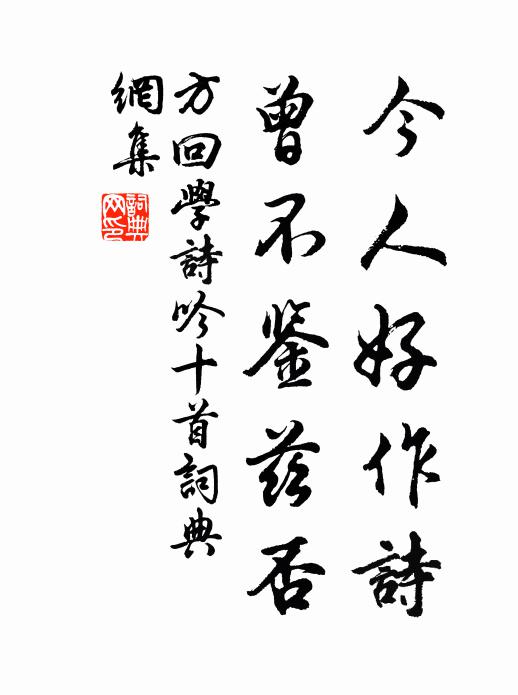 今人好作詩
曾不鉴茲否
方回學詩吟十首詞典
網集
詞典網印